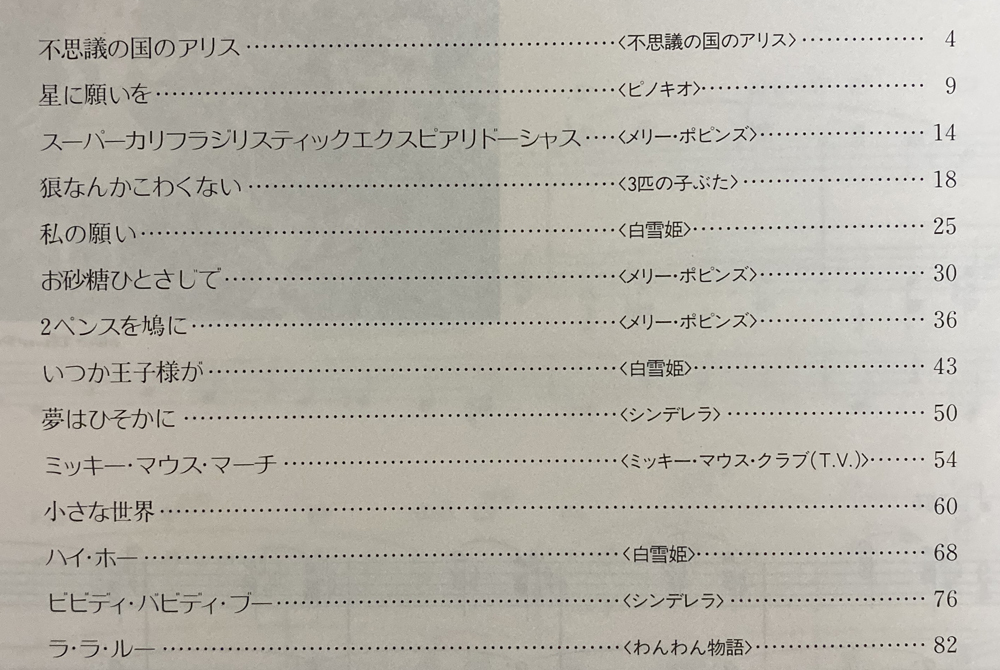 不思議の国のアリス……〈不思議の国のアリス〉…… 4
星に願いを……〈ピノキオ〉…… 9
スーパーカリフラジリスティックエクスピアリドーシャス……〈メリー・ポピンズ〉…… 14
狼なんかこわくない……〈3匹の子ぶた〉…… 18
私の願い……〈白雪姫〉…… 25
お砂糖ひとさじで……〈メリー・ポピンズ〉…… 30
2ペンスを鳩に……〈メリー・ポピンズ〉…… 36
いつか王子様が……〈白雪姫〉…… 43
夢はひそかに……〈シンデレラ〉…… 50
ミッキー・マウス・マーチ……〈ミッキー・マウス・クラブ(T.V.)〉…… 54
小さな世界…… 60
ハイ・ホー……〈白雪姫〉…… 68
ビビディ・バビディ・ブー……〈シンデレラ〉…… 76
ラ・ラ・ルー……〈わんわん物語〉…… 82